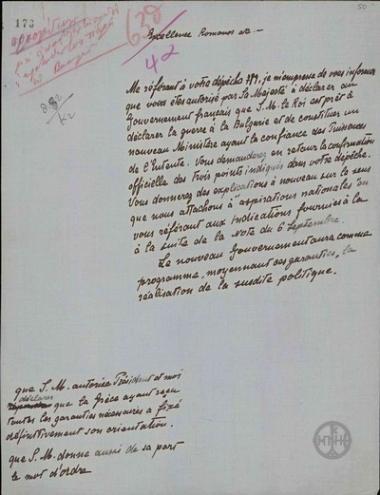 173
50
638
42
Excellence Romanos
Me référant à votre dépêche 779, je m'empresse de vous informer
que vous êtes autorisé par Sa Majesté à déclarer au
Gouvernement français que S.M. le Roi est prêt à
déclarer la guerre à la Bulgarie et de constituer un
nouveau Ministère ayant la confiance des Puissances
de l'Entente. Vous demanderez en retour la confirmation
officielle des trois points indiqués dans votre dépêche.
Vous donnerez des explications à nouveau sur le sens
que nous attachons à "aspirations nationales" en
vous référant aux indications fournies à la
à la suite de la Note du 6 Septembre.
Le nouveau Gouvernement aura comme
programme, moyennant ces garanties, la
réalisation de la susdite politique.
que S.M. autorise Président et moi
déclarer
que la Grèce ayant reçu
toutes les garanties nécessaires a fixé
définitivement son orientation.
que S.M. donne aussi de sa part
le mot d'ordre